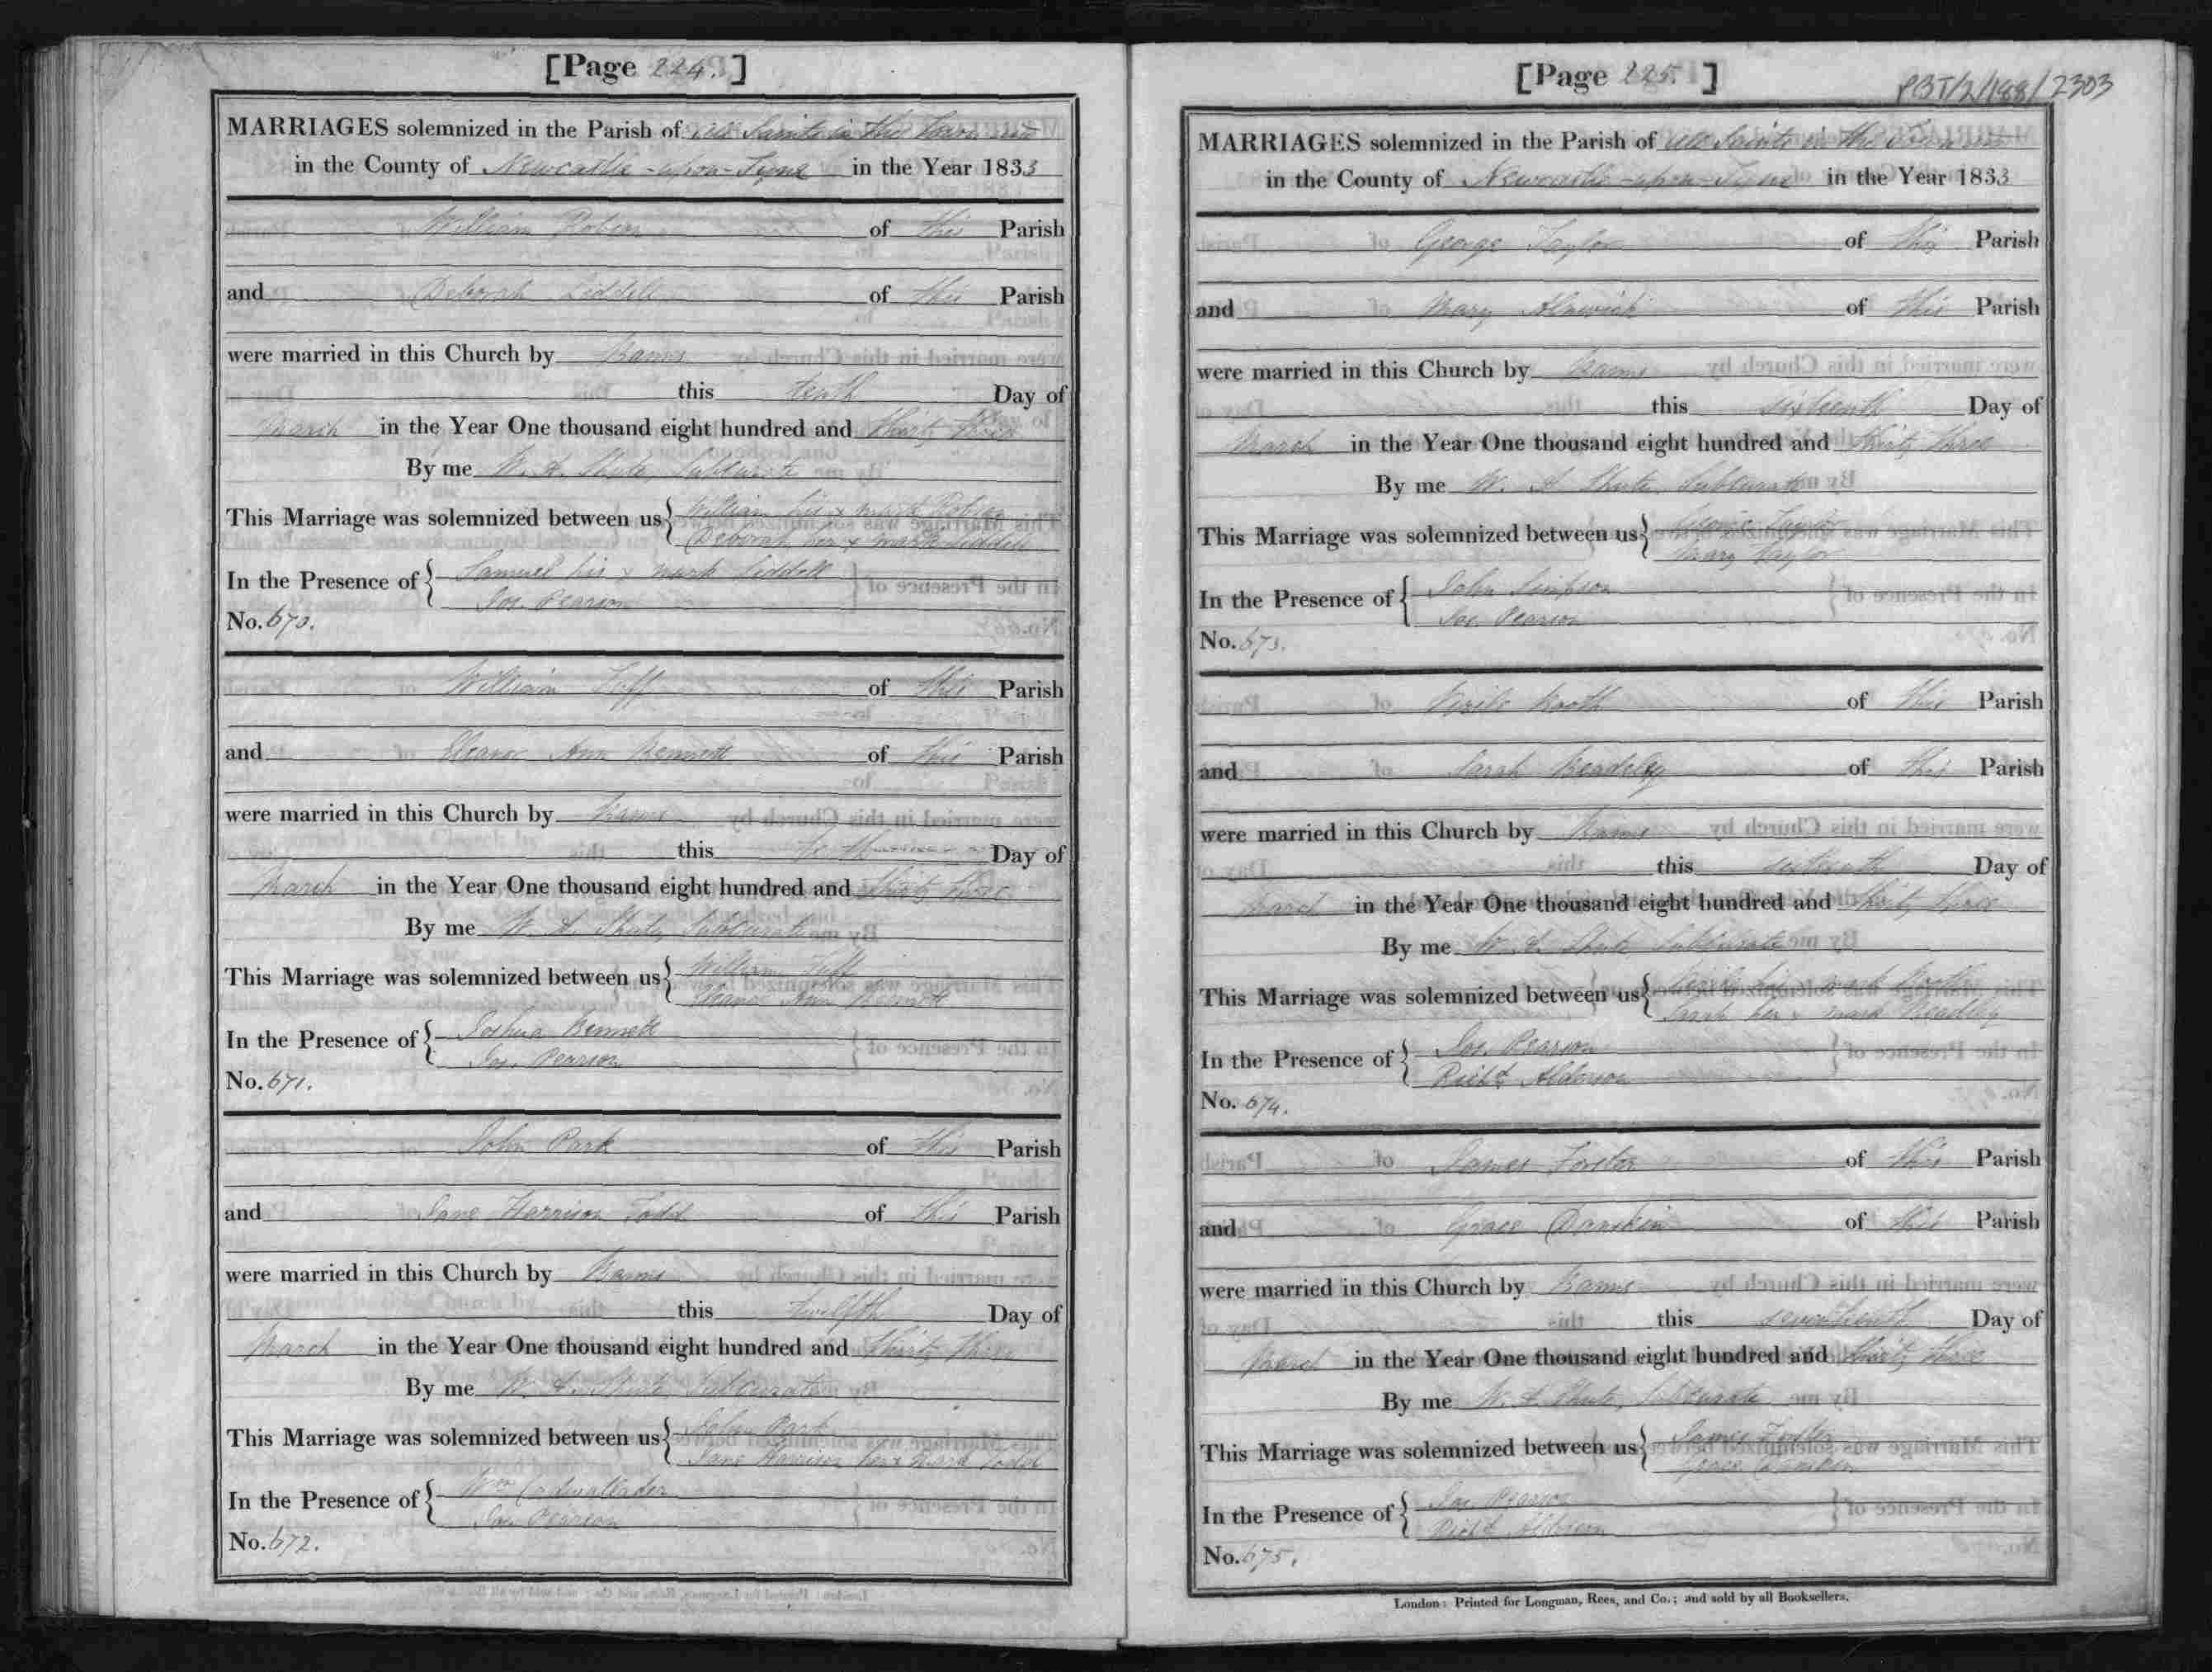 [Page 224.]
MARRIAGES solemnized in the Parish of All Saints in the Town and
in the County of Newcastle-upon-Tyne in the Year 1833
William of this Parish
and Deborah Liddell of this Parish
were married in this Church by Banns
this tenth Day of
March in the Year One thousand eight hundred and thirty three
By me W. A. Shute, Subcurate
This Marriage was solemnized between us { William his x mark
Deborah her x mark Liddell
In the Presence of { Samuel his x mark Liddell
Jos. Pearson
No. 670.
William Tuff of this Parish
and Eleanor Ann Bennett of this Parish
were married in this Church by Banns
this Day of
March in the Year One thousand eight hundred and thirty three
By me W. A. Shute, Subcurate
This Marriage was solemnized between us { William Tuff
Ann Bennett
In the Presence of { Joshua Bennett
Jos. Pearson
No. 671.
John Park of this Parish
and Jane Harrison Todd of this Parish
were married in this Church by Banns
this twelfth Day of
March in the Year One thousand eight hundred and thirty three
By me W. A. Shute Subcurate
This Marriage was solemnized between us { John Park
Jane Harrison her x mark Todd
In the Presence of { Wm Cadwallader
Jos. Pearson
No. 672.
[Page 225.]
PBT/2/188/2303
MARRIAGES solemnized in the Parish of All Saints in the Town and
in the County of Newcastle-upon-Tyne in the Year 1833
George Taylor of this Parish
and Mary Alnwick of this Parish
were married in this Church by Banns
this sixteenth Day of
March in the Year One thousand eight hundred and thirty three
By me W. A Shute, Subcurate
This Marriage was solemnized between us { George Taylor
Mary Taylor
In the Presence of { John Simpson
Jos. Pearson
No. 673.
Booth of this Parish
and Sarah Beadley of this Parish
were married in this Church by Banns
this sixteenth Day of
March in the Year One thousand eight hundred and thirty three
By me W. A. Shute Subcurate
This Marriage was solemnized between us { his mark Booth
Sarah her x mark Beadley
In the Presence of { Jos. Pearson
Richd Alderson
No. 674.
James Forster of this Parish
and Grace Danskin of this Parish
were married in this Church by Banns
this seventeenth Day of
March in the Year One thousand eight hundred and thirty three
By me W. A Shute, Subcurate
This Marriage was solemnized between us { James Forster
Grace Danskin
In the Presence of { Jos. Pearson
Richd Alderson
No. 675.
London: Printed for Longman, Rees, and Co.; and sold by all Booksellers.